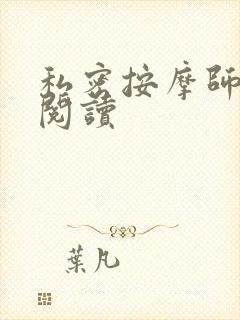 私密按摩師
閱讀
葉凡